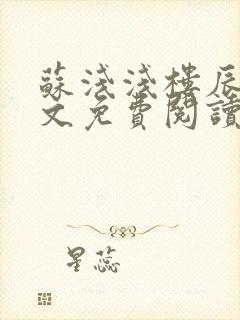 蘇淺淺樓辰
文免費閱讀
星蕊